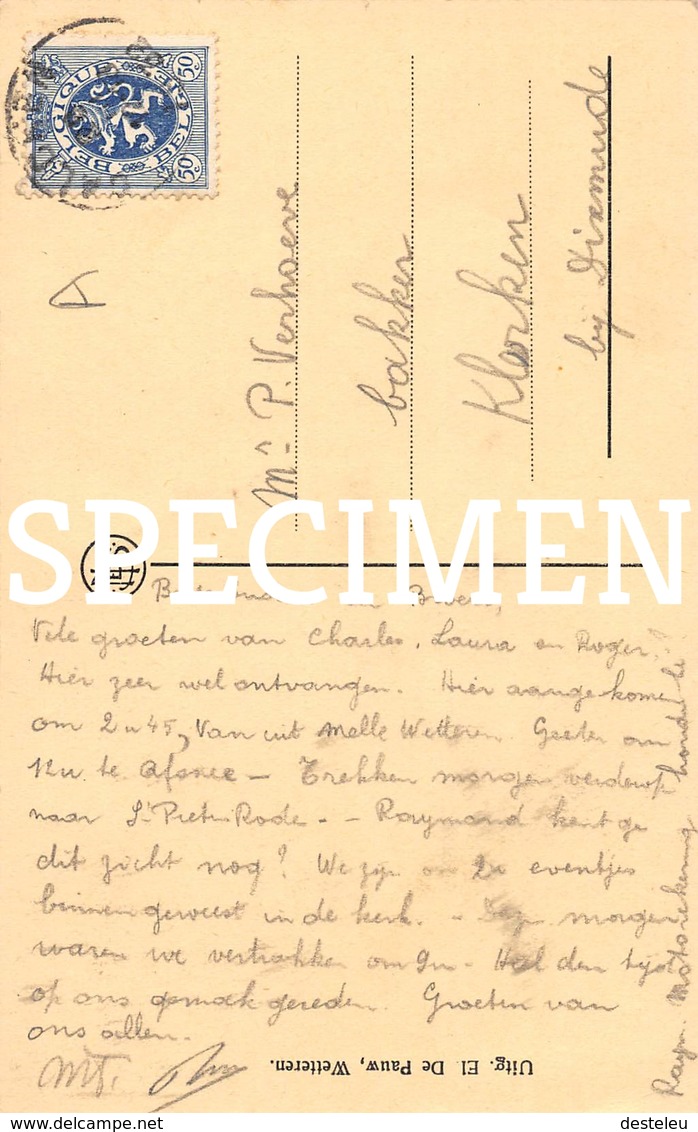 BELGIQUE
BELGIË
50c
50c
Mr P. Verhaeve
bakker
Klerken
by Dixmude
SPECIMEN
Vele groeten van Charles, Laura en Roger.
Hier zeer wel ontvangen. Hier aangekomen
om 2u45, Van uit Melle Wetteren. Gister om
12u. te Afsnee - Trekken morgen verderop
naar St Pieters Rode. - Raymond kent ge
dit zicht nog? We zijn om 2u eventjes
binnen geweest in de kerk. - Dezen morgen
waren we vertrokken om 9u - Heel den tijd
op ons gemak gereden. Groeten van
ons allen.
Raym. Motorekening
Uitg. El. De Pauw, Wetteren.
desteleu
delcampe.net